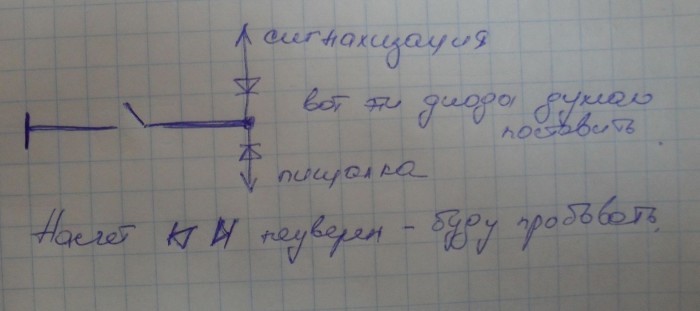 сигнализация
вот эти диоды думаю
поставить.
пищалка
Насчет неуверен - буду пробывать.